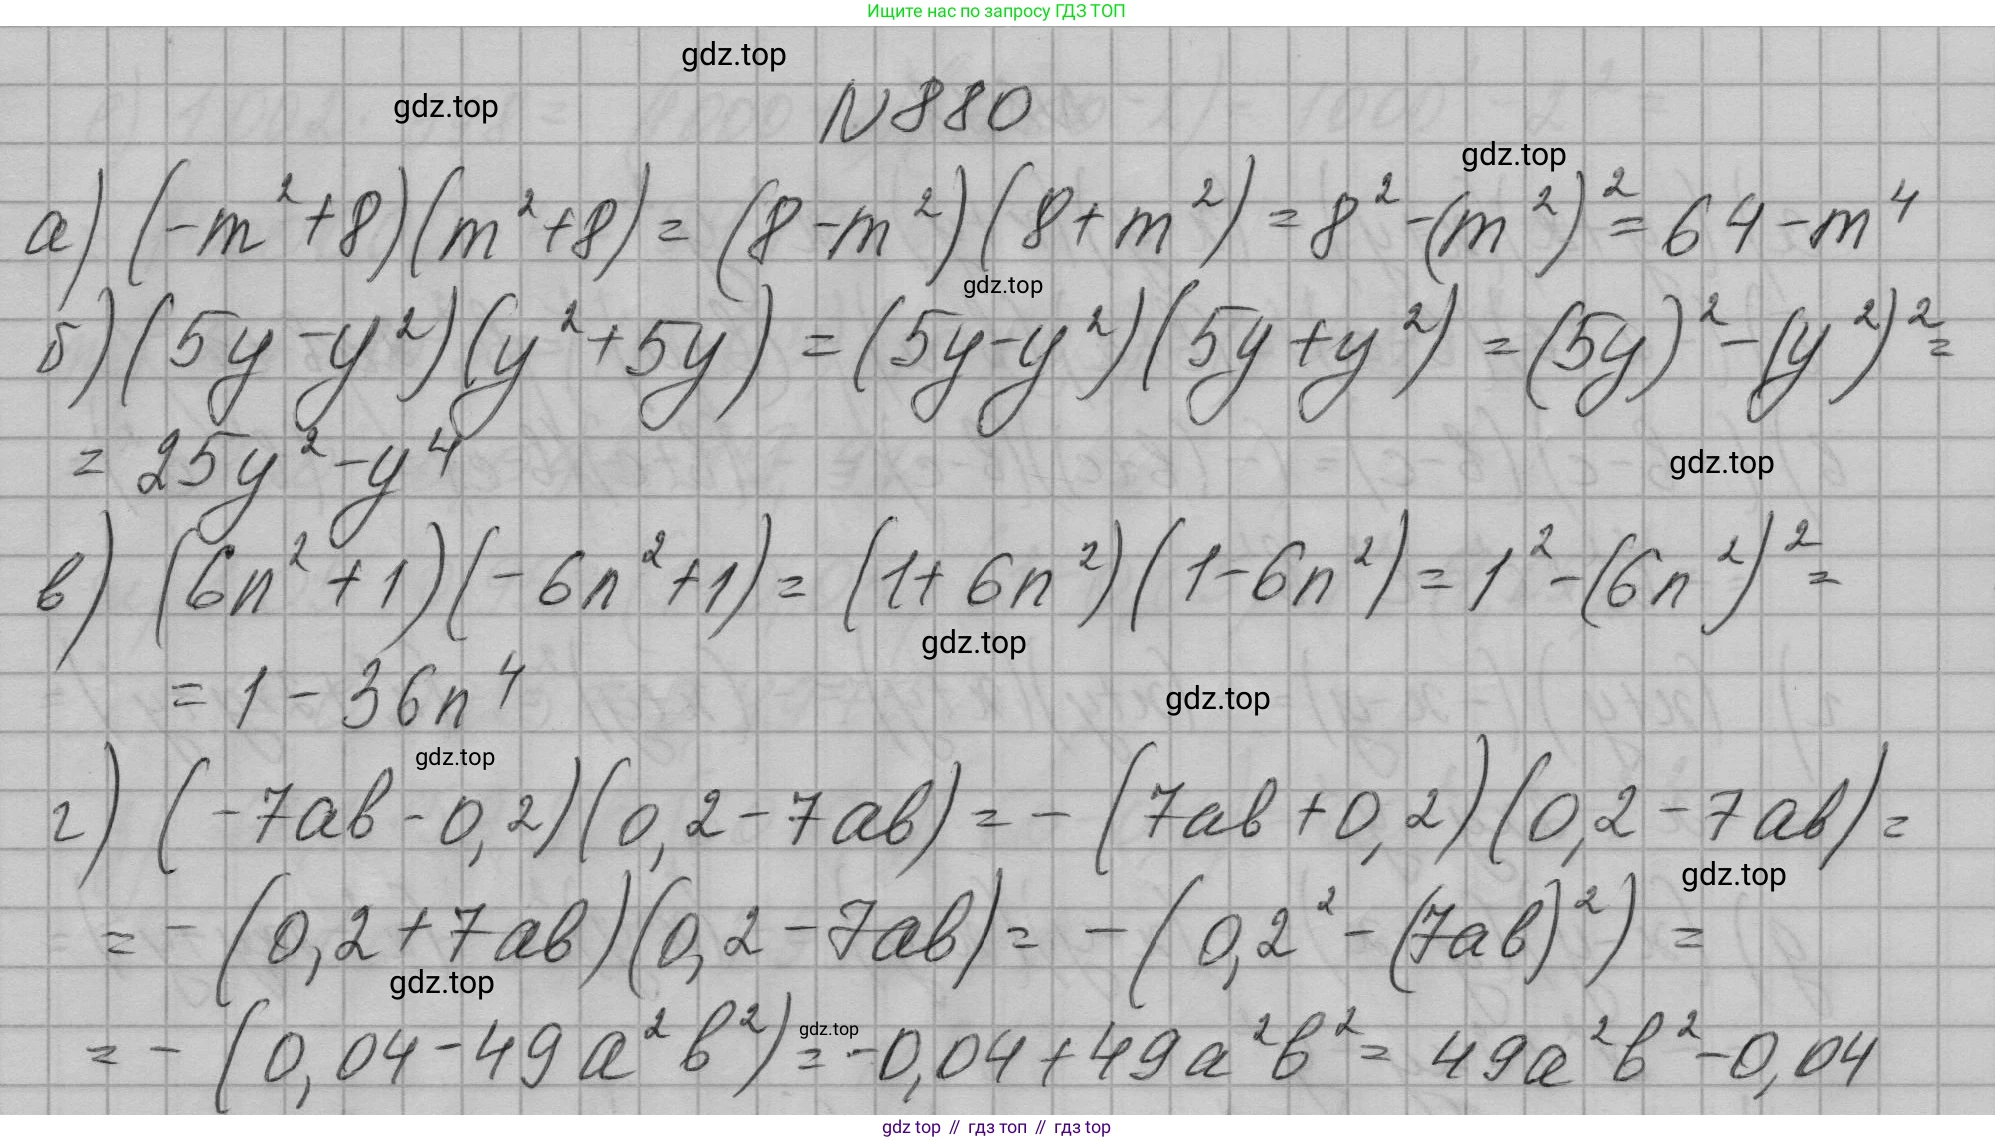 Ищите нас по запросу ГДЗ ТОП
gdz.top
gdz.top
N 880
gdz.top
а) (-m²+8)(m²+8) = (8-m²)(8+m²) = 8²-(m²)² = 64-m⁴
gdz.top
б) (5y-y²)(y²+5y) = (5y-y²)(5y+y²) = (5y)²-(y²)² =
= 25y²-y⁴
gdz.top
в) (6n²+1)(-6n²+1) = (1+6n²)(1-6n²) = 1²-(6n²)² =
gdz.top
= 1-36n⁴
gdz.top
gdz.top
г) (-7ab-0,2)(0,2-7ab) = -(7ab+0,2)(0,2-7ab) =
gdz.top
= -(0,2+7ab)(0,2-7ab) = -(0,2²-(7ab)²) =
gdz.top
gdz.top
= -(0,04-49a²b²) = -0,04+49a²b² = 49a²b²-0,04
gdz top // гдз топ // гдз top